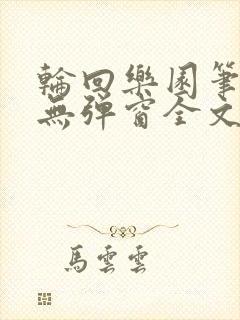 輪回樂園筆
無彈窗全文
馬雲雲